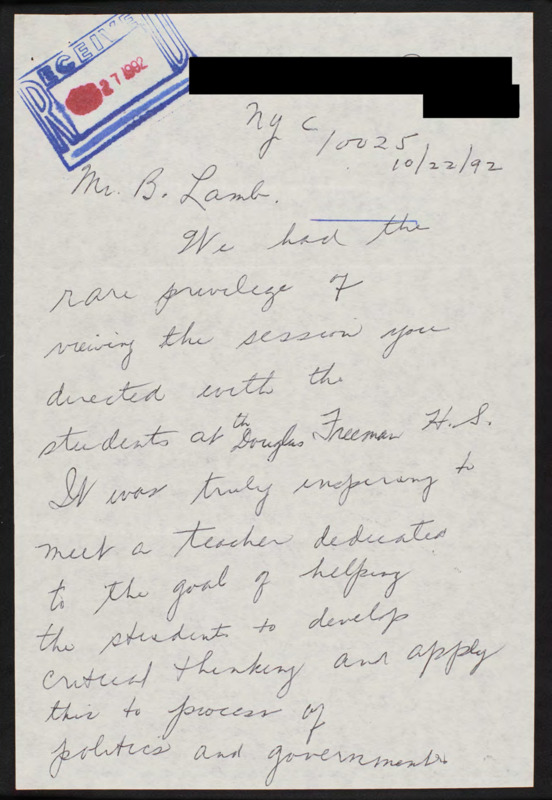 RECEIVED
27 1992
NYC
10025
10/22/92
Mr. B. Lamb.
We had the
rare privilege of
viewing the session you
directed with the
students at the Douglas Freeman H.S.
It was truly inspiring to
meet a teacher dedicated
to the goal of helping
the students to develop
critical thinking and apply
this to process of
politics and government.